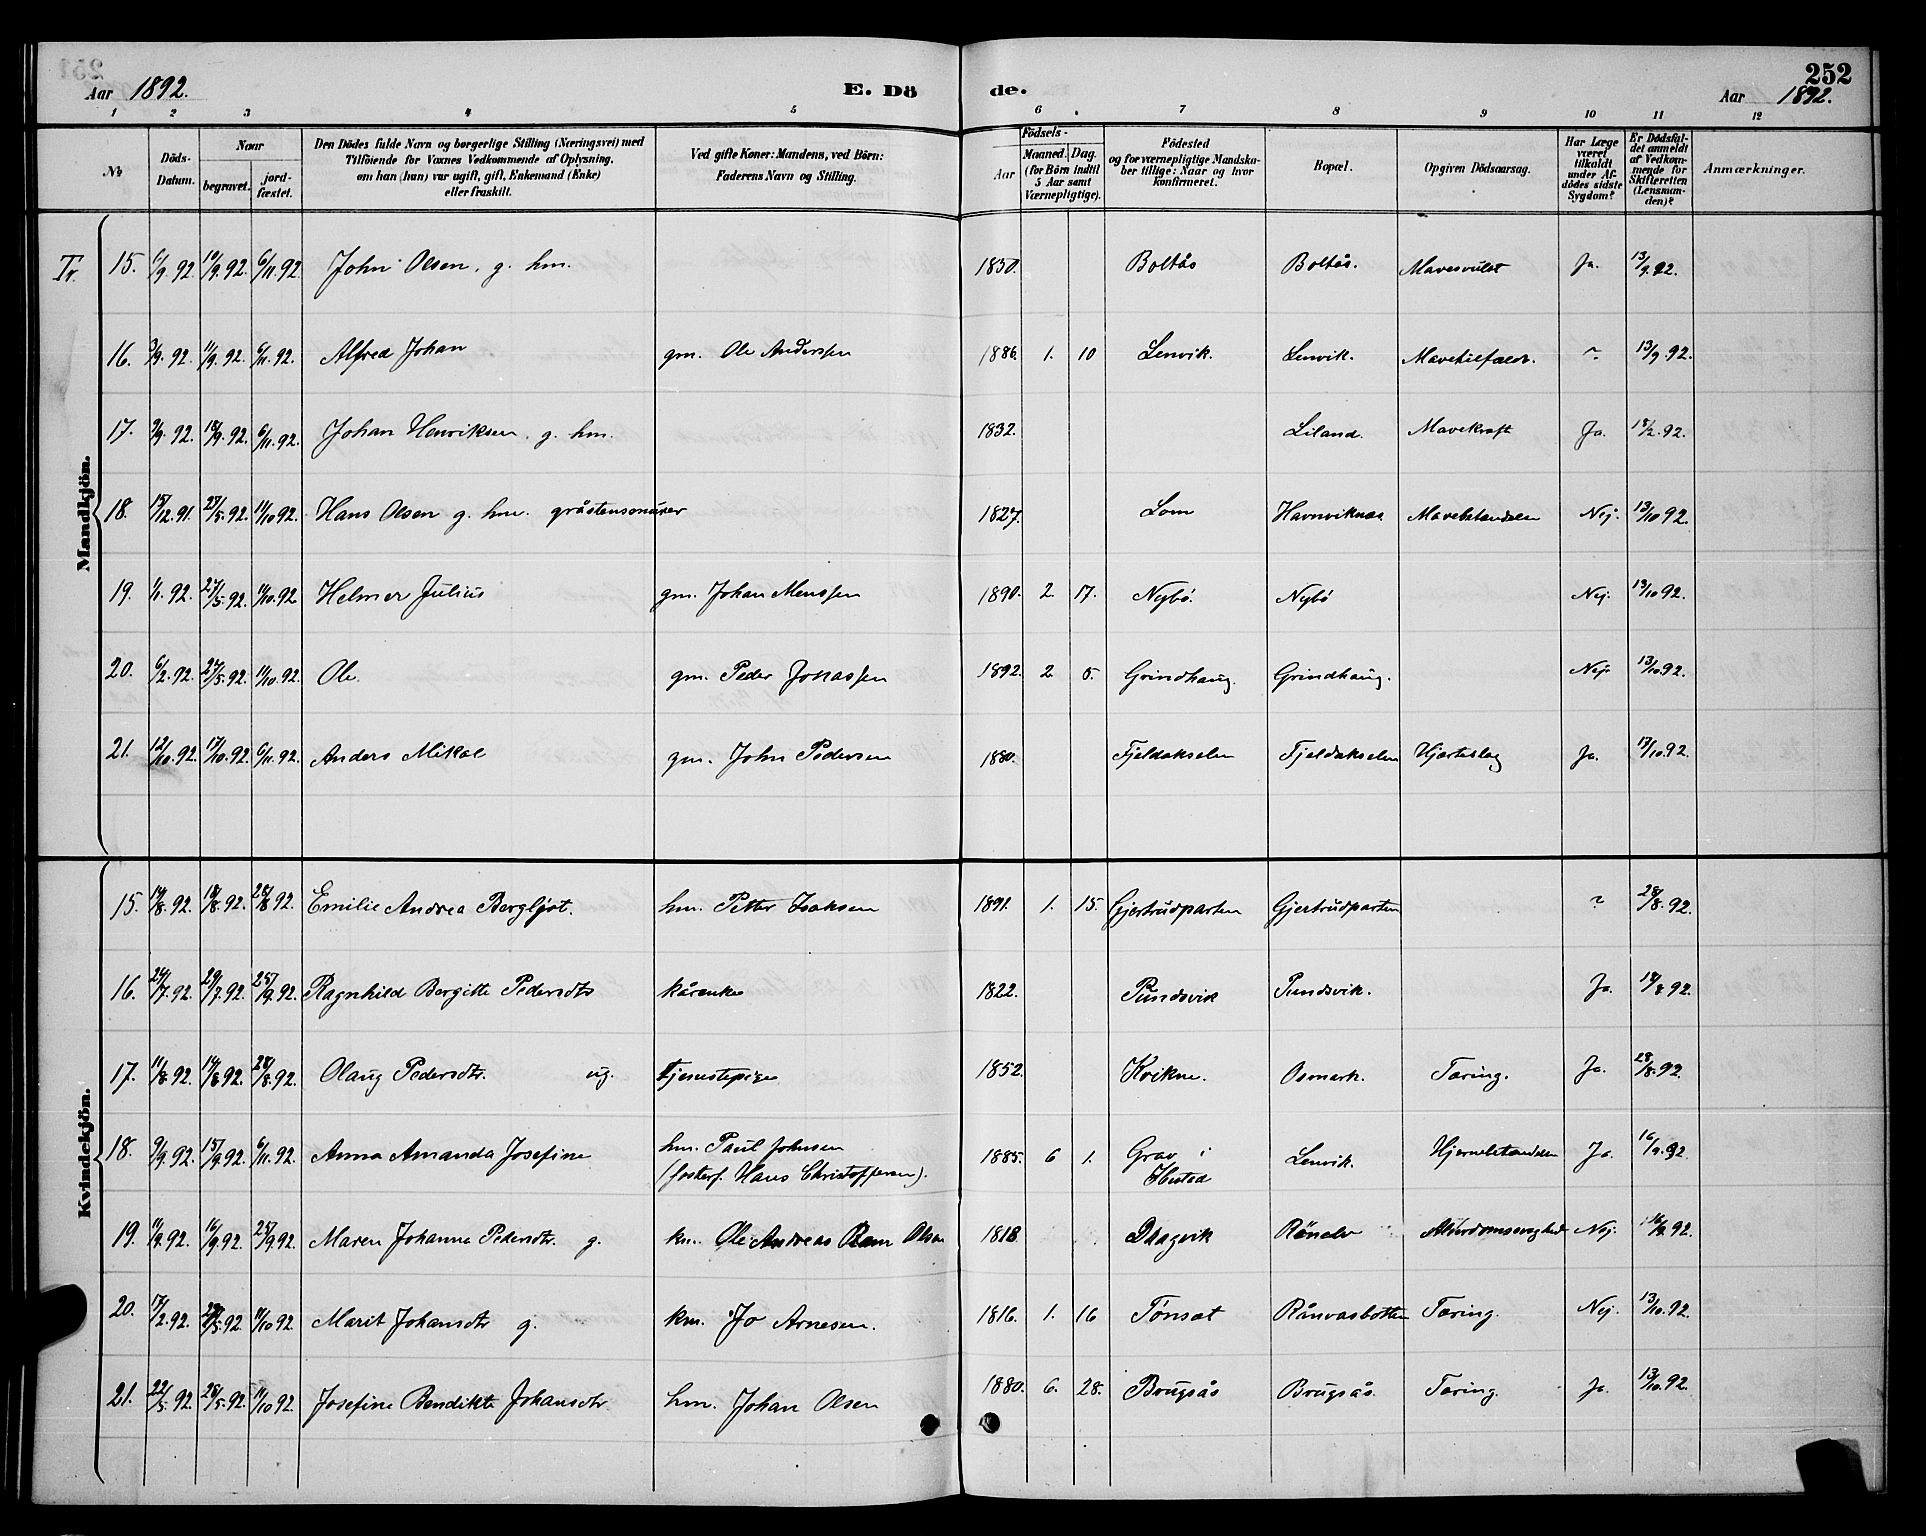 Aar 1892. E. Dö de. 252
Aar 1892.
1 2 3 4 5 6 7 8 9 10 11 12
No
Döds-Datum.
Naar
begravet.
jord-fæstet.
Den Dödes fulde Navn og borgerlige Stilling (Næringsvei) med
Tilföiende for Voxnes Vedkommende af Oplysning,
om han (hun) var ugift, gift, Enkemand (Enke)
eller fraskilt.
Ved gifte Koner: Mandens, ved Börn:
Faderens Navn og Stilling.
Födsels-
Aar
Maaned. Dag.
(for Börn indtil
5 Aar samt
Værnepligtige).
Födested
og for værnepligtige Mandska-
ber tillige: Naar og hvor
konfirmeret.
Bopæl.
Opgiven Dödsaarsag.
Har Læge
været
tilkaldt
under Af-
dödes sidste
Sygdom?
Er Dödsfal-
det anmeldt
af Vedkom-
mende for
Skifteretten
(Lensman-
den)?
Anmærkninger.
Tr.
Mandkjön.
15. 6/9 92 10/9. 92. 6/11. 92 John Olsen, g. hm. 1850. Boltås Boltås. Mavesvulst Ja. 13/9. 92.
16. 3/9. 92. 11/9. 92. 6/11. 92. Alfred Johan gm. Ole Anderssen 1886. 1. 10 Lenvik. Lenvik. Mavetilfælde. ? 13/9. 92.
17. 9/9. 92. 18/9. 92. 6/11. 92. Johan Henriksen, g. hm. 1832. Liland. Mavekræft Ja. 92.
18. 15/12. 91. 27/5. 92. 11/10 92. Hans Olsen g. hm. gråstensmurer 1827. Lom Havnviknes Mavebetændelse Nej. 13/10 92.
19. 1/1. 92. 27/5. 92. 11/10. 92 Helmer Julius gm. Johan Menssen 1890. 2. 17. Nybö. Nybö Nej. 13/10 92.
20. 6/2. 92. 27/5. 92. 11/10. 92. Ole gm. Peder Jonassen 1892. 2. 5. Grindhaug. Grindhaug. Nej. 13/10. 92.
21. 12/10. 92. 17/10. 92. 6/11. 92. Anders Mikal gm. John Pedersen 1880. Fjeldakselen Fjeldakselen Hjerteslag Ja. 17/10. 92.
Kvindekjön.
15. 14/8. 92. 18/8. 92. 28/8 92. Emilie Andrea Bergljot. hm. Petter Isaksen 1891. 1. 15. Gjertrudparten Gjertrudparten ? 28/8. 92.
16. 24/7. 92. 29/7. 92. 25/9. 92. Ragnhild Bergitte Pedersdtr kårenke 1822. Pundsvik Pundsvik. Ja. 92.
17. 11/8. 92. 14/8 92. 28/8. 92. Olaug Pedersdtr. ug. tjenestepige 1852. Kvikne. Osmark. Tæring. Ja. 28/8. 92.
18. 9/9. 92. 15/9. 92. 6/11. 92. Anna Amanda Josefine hm. Paul Johnsen
(fosterf. Hans Christoffersen). 1885. 6 1. Grav i
Ibestad Lenvik. Hjernebetændelse Ja. 16/9. 92.
19. 11/9. 92. 16/9. 92. 25/9 92. Maren Johanna Pedersdtr. g. km. Ole Andreas Olsen 1818. Dragvik Råneelv Alderdomssvaghed Nej. 16/9. 92.
20. 17/2. 92. 92 11/10 92. Marit Johansdtr g. km. Jo Arnesen. 1816. 1. 16 Tönset Rånvasbotten Tæring. Nej. 13/10. 92.
21. 22/5. 92. 28/5. 92 11/10 92. Josefine Bendikte Johansdtr. hm. Johan Olsen 1880. 6. 28. Brugsås Brugsås. Tæring. Ja. 13/10. 92.